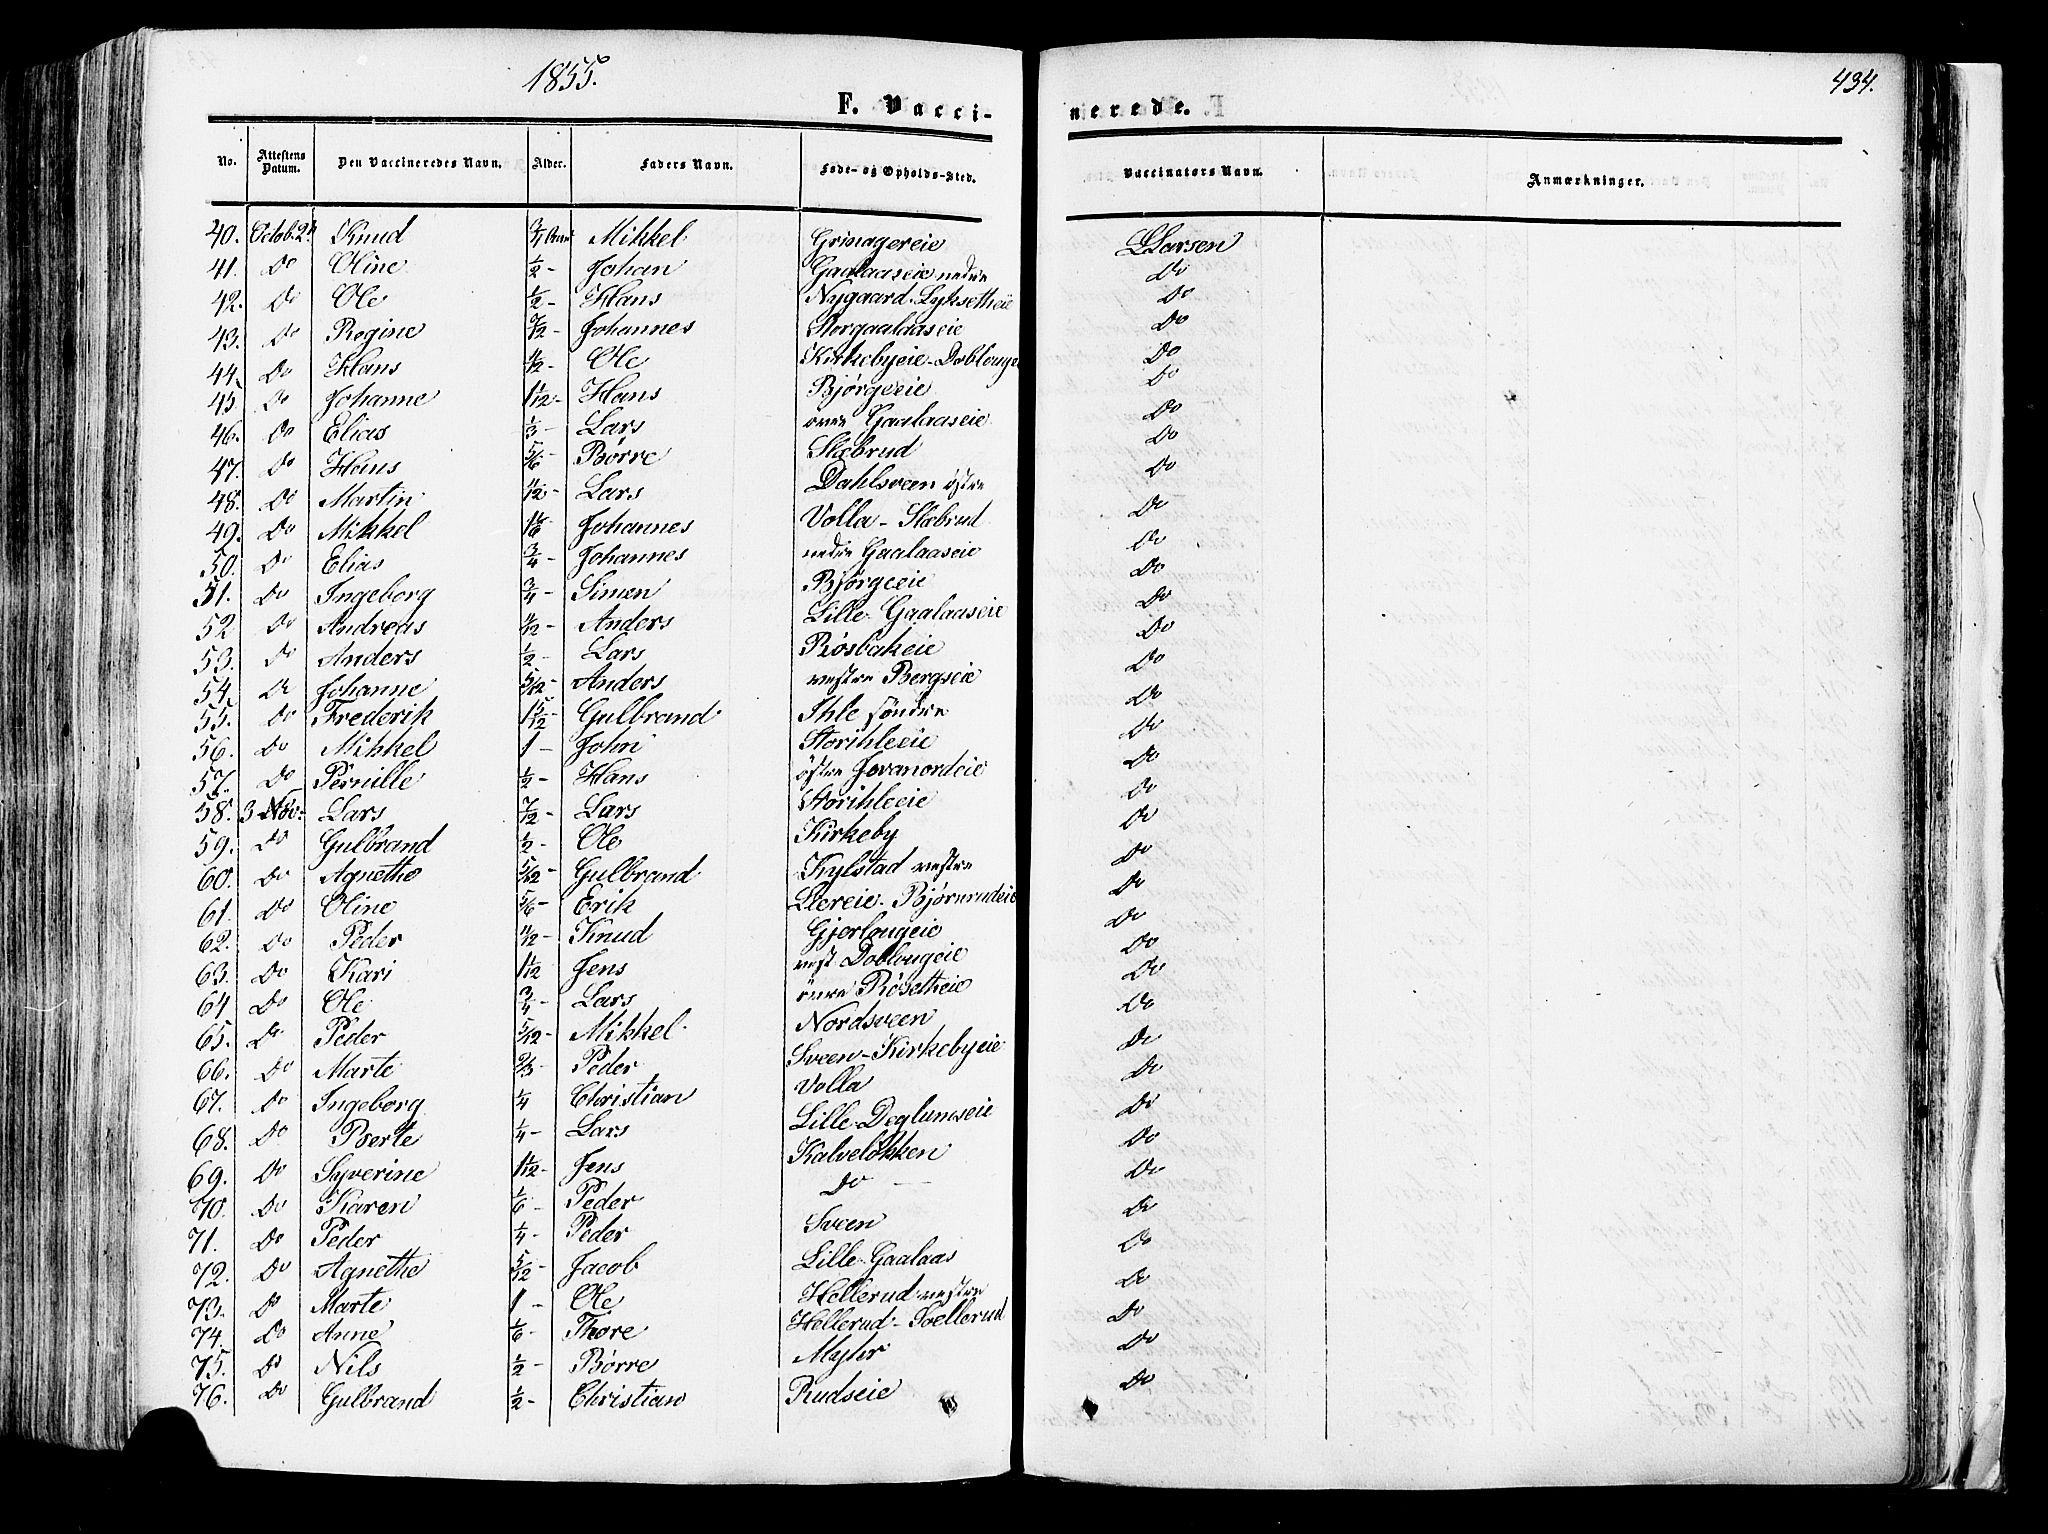 1855.
434.
F. Vacci-
nerede.
No. Attestens Datum. Den Vaccineredes Navn. Alder. Faders Navn. Føde- og Opholds-Sted. Vaccinators Navn. Anmærkninger.
40. Octob. 2 Knud Mikkel Grinagereie Larsen
41. Do Oline 1/2 - Johan Gaalaaseie nedre Do
42. Do Ole 1/2 - Hans Nygaard-Lyksetheie Do
43. Do Regine 7/12 - Johannes Storgaalaaseie Do
44. Do Hans 11/12 - Ole Kirkebyeie-Doblouge Do
45. Do Johanne 1 1/12 - Hans Bjørgeeie Do
46. Do Elias 1/3 - Lars øvre Gaalaaseie Do
47. Do Hans 5/6 - Børre Slæbrud Do
48. Do Martin 11/12 - Lars Dahlsveen östre Do
49. Do Mikkel 1 1/6 - Johannes Volla - Slæbrud Do
50. Do Elias 3/4 - Johannes nedre Gaalaaseie Do
51. Do Ingeborg 3/4 - Simen Bjørgeeie Do
52 Do Andreas 11/12 - Anders Lille-Gaalaaseie Do
53. Do Anders 1/2 - Lars Røsbakeie Do
54. Do Johanne 5/12 - Anders vestre Bergseie Do
55. Do Frederik 1 5/12 - Gulbrand Ihle söndre Do
56. Do Mikkel 1 - John Storihleeie Do
57. Do Pernille 1/2 - Hans östre Jevanordeie Do
58. 3 Nov. Lars 7/12 - Lars Storihleeie Do
59. Do Gulbrand 1/2 - Ole Kirkeby Do
60. Do Agnethe 5/12 - Gulbrand Kylstad vestre Do
61. Do Oline 5/6 - Erik Lereie-Bjørnrudeie Do
62. Do Peder 11/12 - Knud Gjerlougeie Do
63. Do Kari 1 1/12 Jens vest Doblougeie Do
64. Do Ole 3/4 - Lars övre Røsetheie Do
65. Do Peder 5/12 - Mikkel Nordsveen Do
66. Do Marte 2/3 - Peder Sveen-Kirkebyeie Do
67. Do Ingeborg 1/4 Christian Volla Do
68. Do Berte 1/4 - Lars Lille-Deglumseie Do
69. Do Syverine 1 1/12 - Jens Kalveløkken Do
70. Do Karen 1/6 - Peder Do Do
71. Do Peder 1/4 - Peder Sveen Do
72. Do Agnethe 5/12 - Jacob Lille-Gaalaas Do
73. Do Marte 1 - Ole Hellerud vestre Do
74. Do Anne 1/6 - Thore Hellerud-Soellerud Do
75. Do Nils 1/2 - Børre Myhr Do
76. Do Gulbrand 1/2 - Christian Rudseie Do